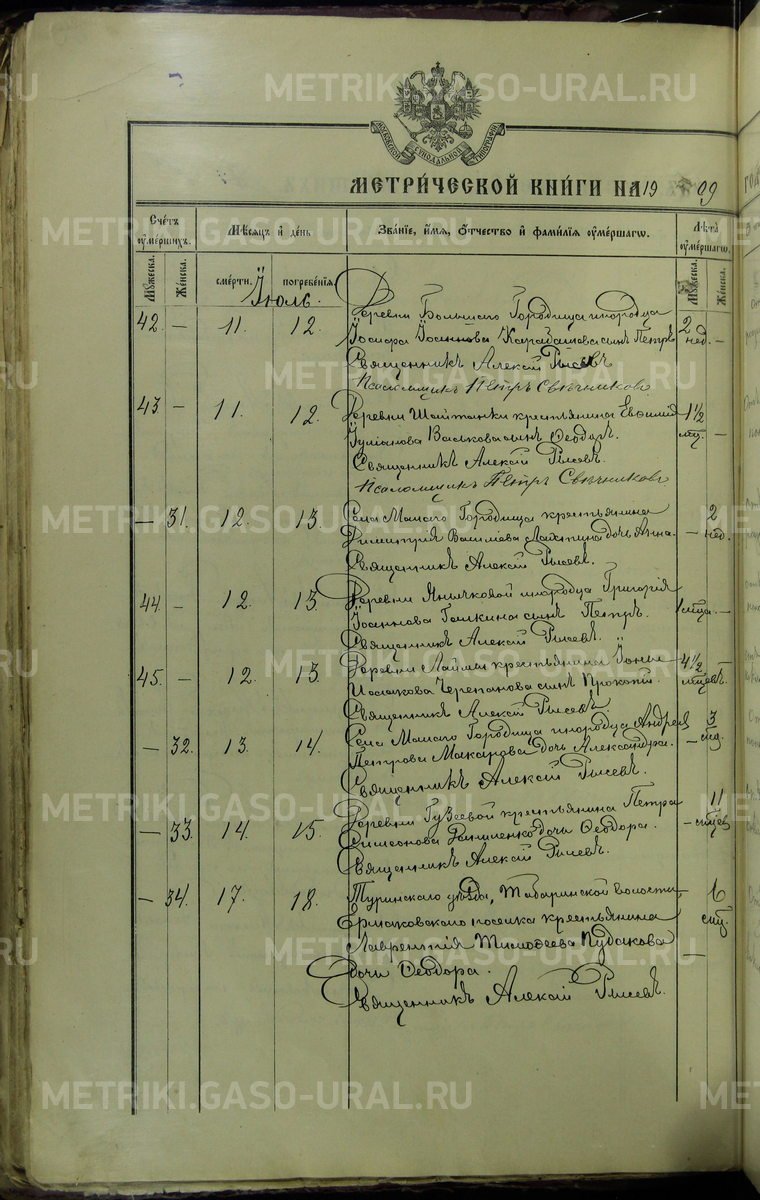 МЕТРИ́ЧЕСКОЙ КНИ́ГИ НА 1909
Сче́тъ ᲂу҆ме́ршихъ.
Мѣ́сяцъ и҆ де́нь
Зва́нїе, и҆́мя, ѻ҆́тчество и҆ фами́лїя ᲂу҆ме́ршагѡ.
Лѣ́та ᲂу҆ме́ршагѡ.
Мꙋ́жеска.
Же́нска.
сме́рти.
погребе́нїя.
Мꙋ́жеска.
Же́нска.
Іюль.
42. — 11. 12. Деревни Большаго Городища инородца 2
Іоанна сынъ Петръ нед. —
Священникъ Алексій Рысевъ
Псаломщикъ Петръ Свѣчниковъ
43 — 11. 12. Деревни Шайтанки крестьянина Евѳимія 1½
Васькова сынъ Ѳеодоръ. мц. —
Священникъ Алексій Рысевъ.
Псаломщикъ Петръ Свѣчниковъ
— 31. 12. 13. Села Малаго Городища крестьянина 2
Димитрія дочь Анна. — нед.
Священникъ Алексій Рысевъ.
44. — 12. 13. Деревни Янычковой инородца Григорія
Іоаннова Галкина сынъ Петръ. 1 мца. —
Священникъ Алексій Рысевъ.
45. — 12. 13. Деревни Лаймы крестьянина Іоны 4½
Исаакова Черепанова сынъ Прокопій. мцевъ —
Священникъ Алексій Рысевъ.
— 32. 13. 14. Села Малаго Городища инородца Андрея 3
Петрова Макарова дочь Александра. —
Священникъ Алексій Рысевъ.
— 33. 14. 15. Деревни Гузеевой крестьянина Петра 11
Симеонова Даниленко дочь Ѳеодора. — мцев
Священникъ Алексій Рысевъ.
— 34. 17. 18. Туринскаго уѣзда, Табаринской волости, 6
Ермаковскаго поселка крестьянина мц.
Лаврентія Тимоѳеева Пудакова —
дочь Ѳеодора.
Священникъ Алексій Рысевъ.
METRIKI.GASO-URAL.RU